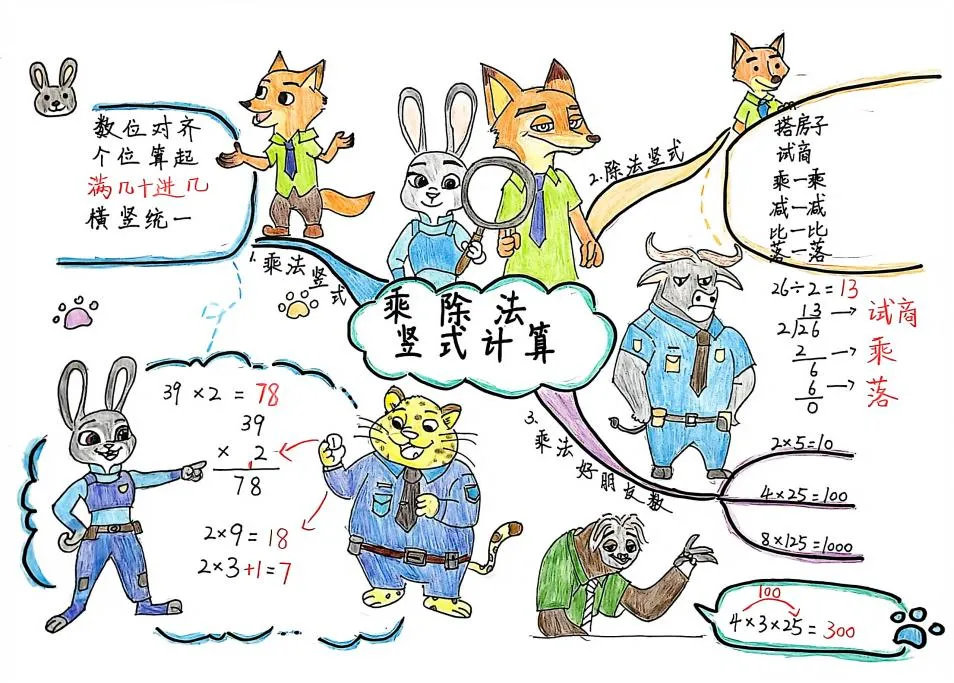 乘除法
竖式计算
1.乘法竖式
数位对齐
个位算起
满几十进几
横竖统一
39×2=78
39
×2
78
2×9=18
2×3+1=7
2.除法竖式
搭房子
试商
乘一乘
减一减
比一比
落一落
26÷2=13
13→试商
2/26
2→乘
6
6→落
0
3.乘法好朋友数
2×5=10
4×25=100
8×125=1000
100
4×3×25=300